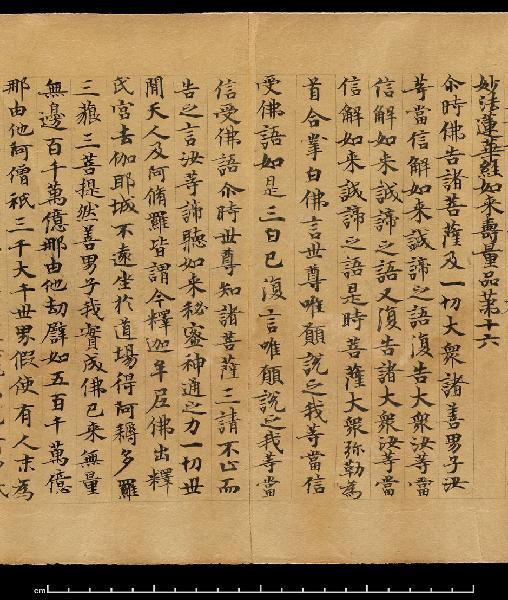 妙法蓮華經如來壽量品第十六
尒時佛告諸菩薩及一切大衆諸善男子汝
等當信解如来誠諦之語復告大衆汝等當
信解如来誠諦之語又復告諸大衆汝等當
信解如来誠諦之語是時菩薩大衆弥勒為
首合掌白佛言世尊唯願說之我等當信
受佛語如是三白已復言唯願說之我等當
信受佛語尒時世尊知諸菩薩三請不止而
告之言汝等諦聽如来秘密神通之力一切世
閒天人及阿脩羅皆謂今釋迦牟尼佛出釋
氏宮去伽耶城不遠坐於道場得阿耨多羅
三藐三菩提然善男子我實成佛已来無量
無邊百千萬億那由他劫譬如五百千萬億
那由他阿僧祇三千大千世界假使有人末為
cm